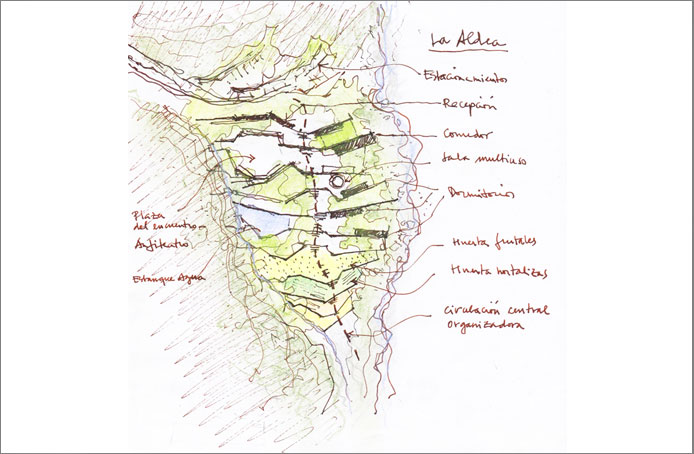 La Aldea
Estacionamientos
Recepción
Comedor
Sala multiuso
Dormitorios
Plaza
del encuentro -
Anfiteatro
Estanque Agua
Huerta frutales
Huerta hortalizas
Circulación central
organizadora